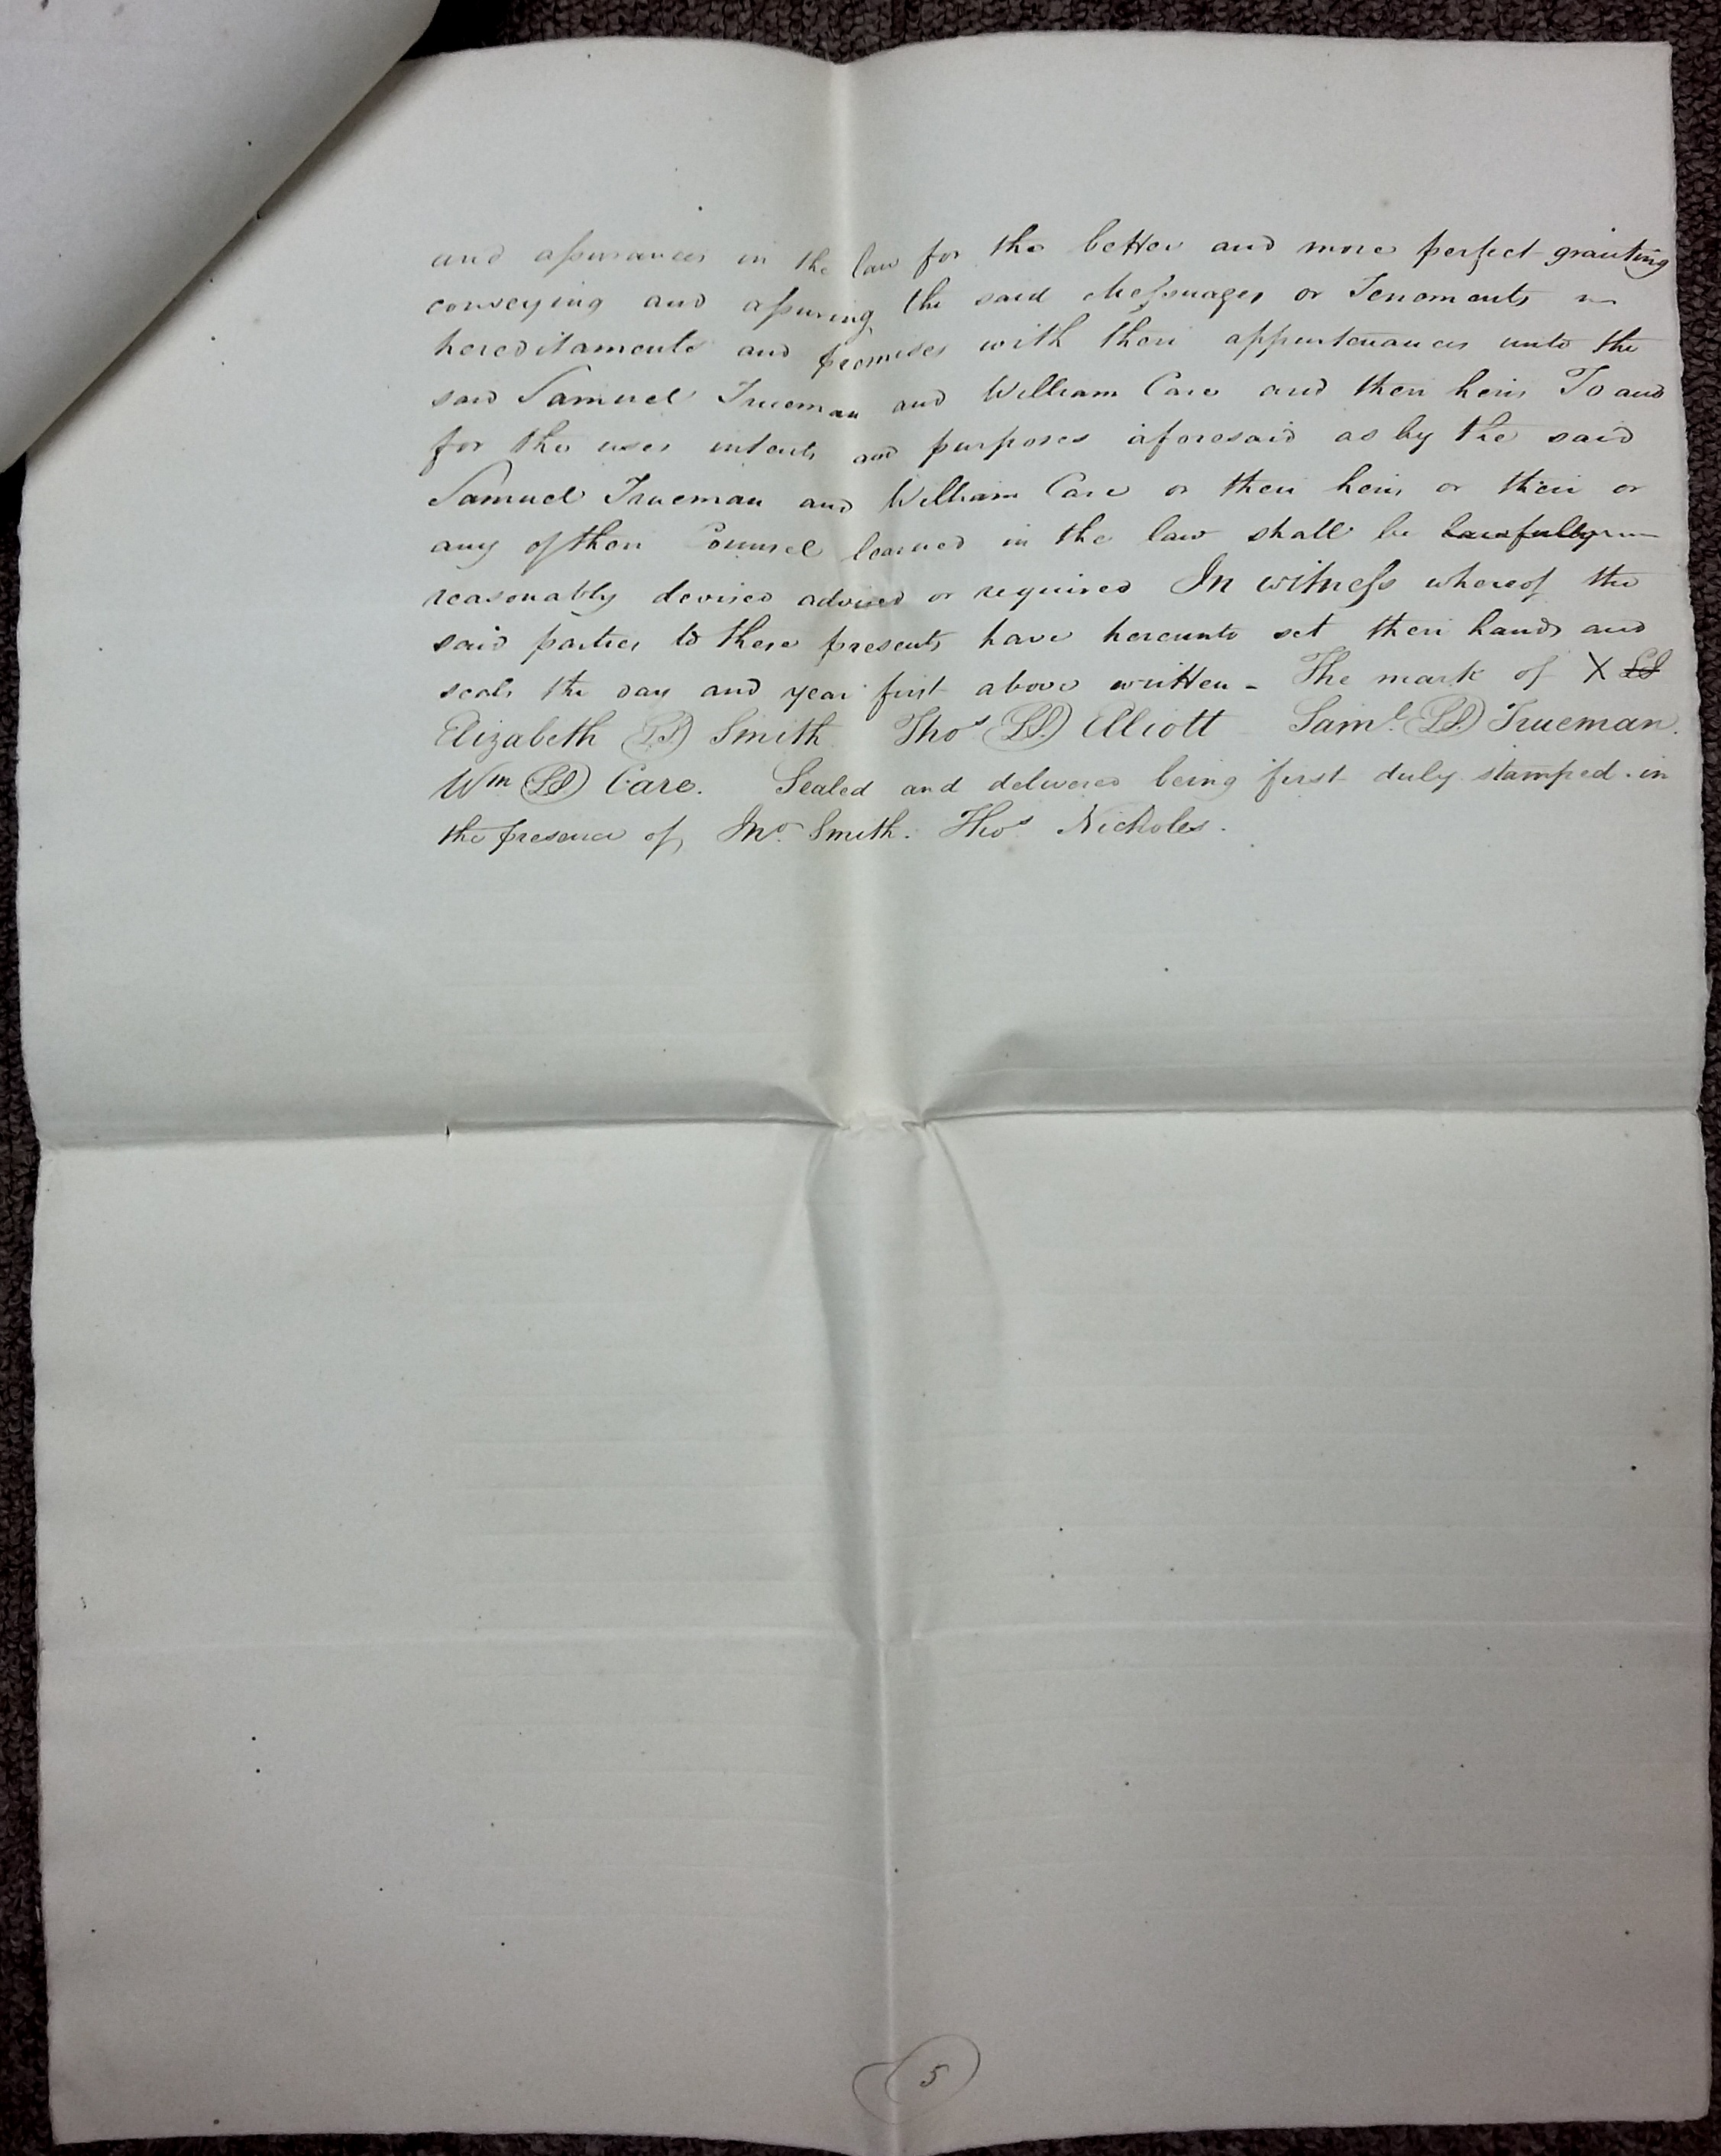 and assurances in the law for the better and more perfect granting
conveying and assuring the said Messuages or Tenements
hereditaments and premises with their appurtenances unto the
said Samuel Trueman and William Care and their heirs To and
for the uses intents and purposes aforesaid as by the said
Samuel Trueman and William Care or their heirs or their or
any of their Counsel learned in the law shall be lawfully
reasonably devised advised or required In witness whereof the
said parties to these presents have hereunto set their hands and
seals the day and year first above written - The mark of X LS
Elizabeth LS Smith Thos LS Elliott Saml. LS Trueman.
Wm LS Care. Sealed and delivered being first duly stamped in
the presence of Jno. Smith. Thos Nicholes.
5